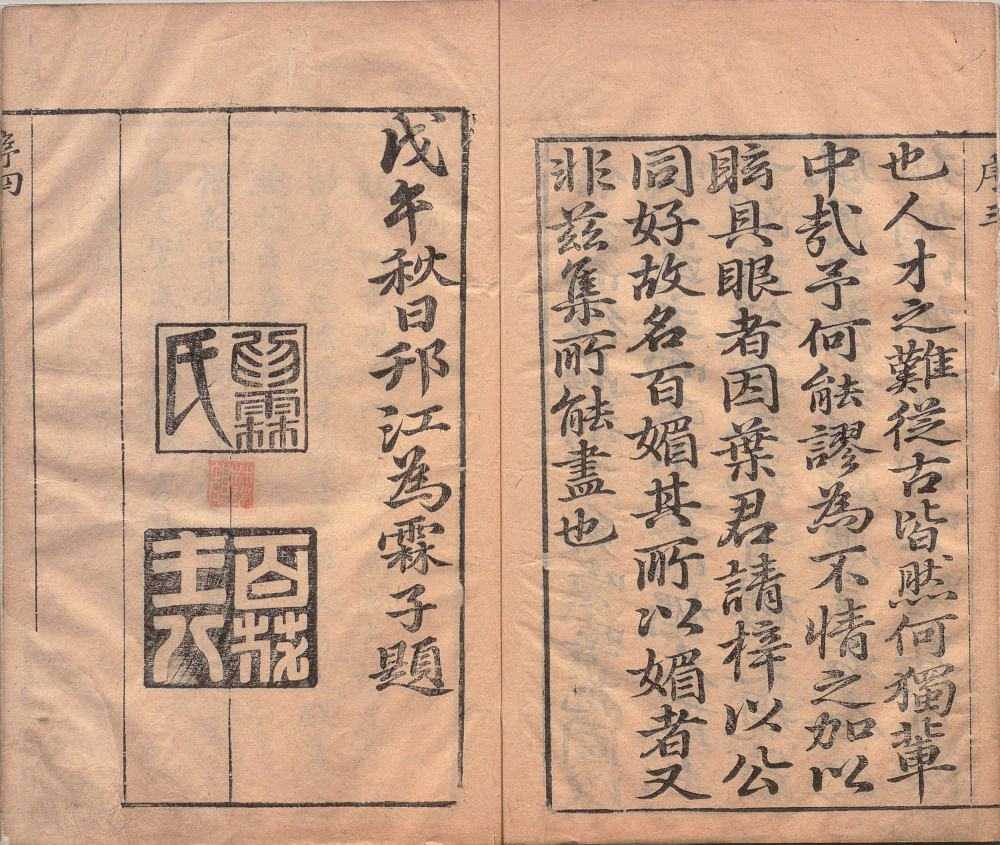 序三
也人才之難從古皆然何獨輩
中哉予何能謬為不情之加以
眩具眼者因葉君請梓以公
同好故名百媚其所以媚者又
非茲集所能盡也
戊午秋日邗江為霖子題
為霖
氏
百花
主人
序四